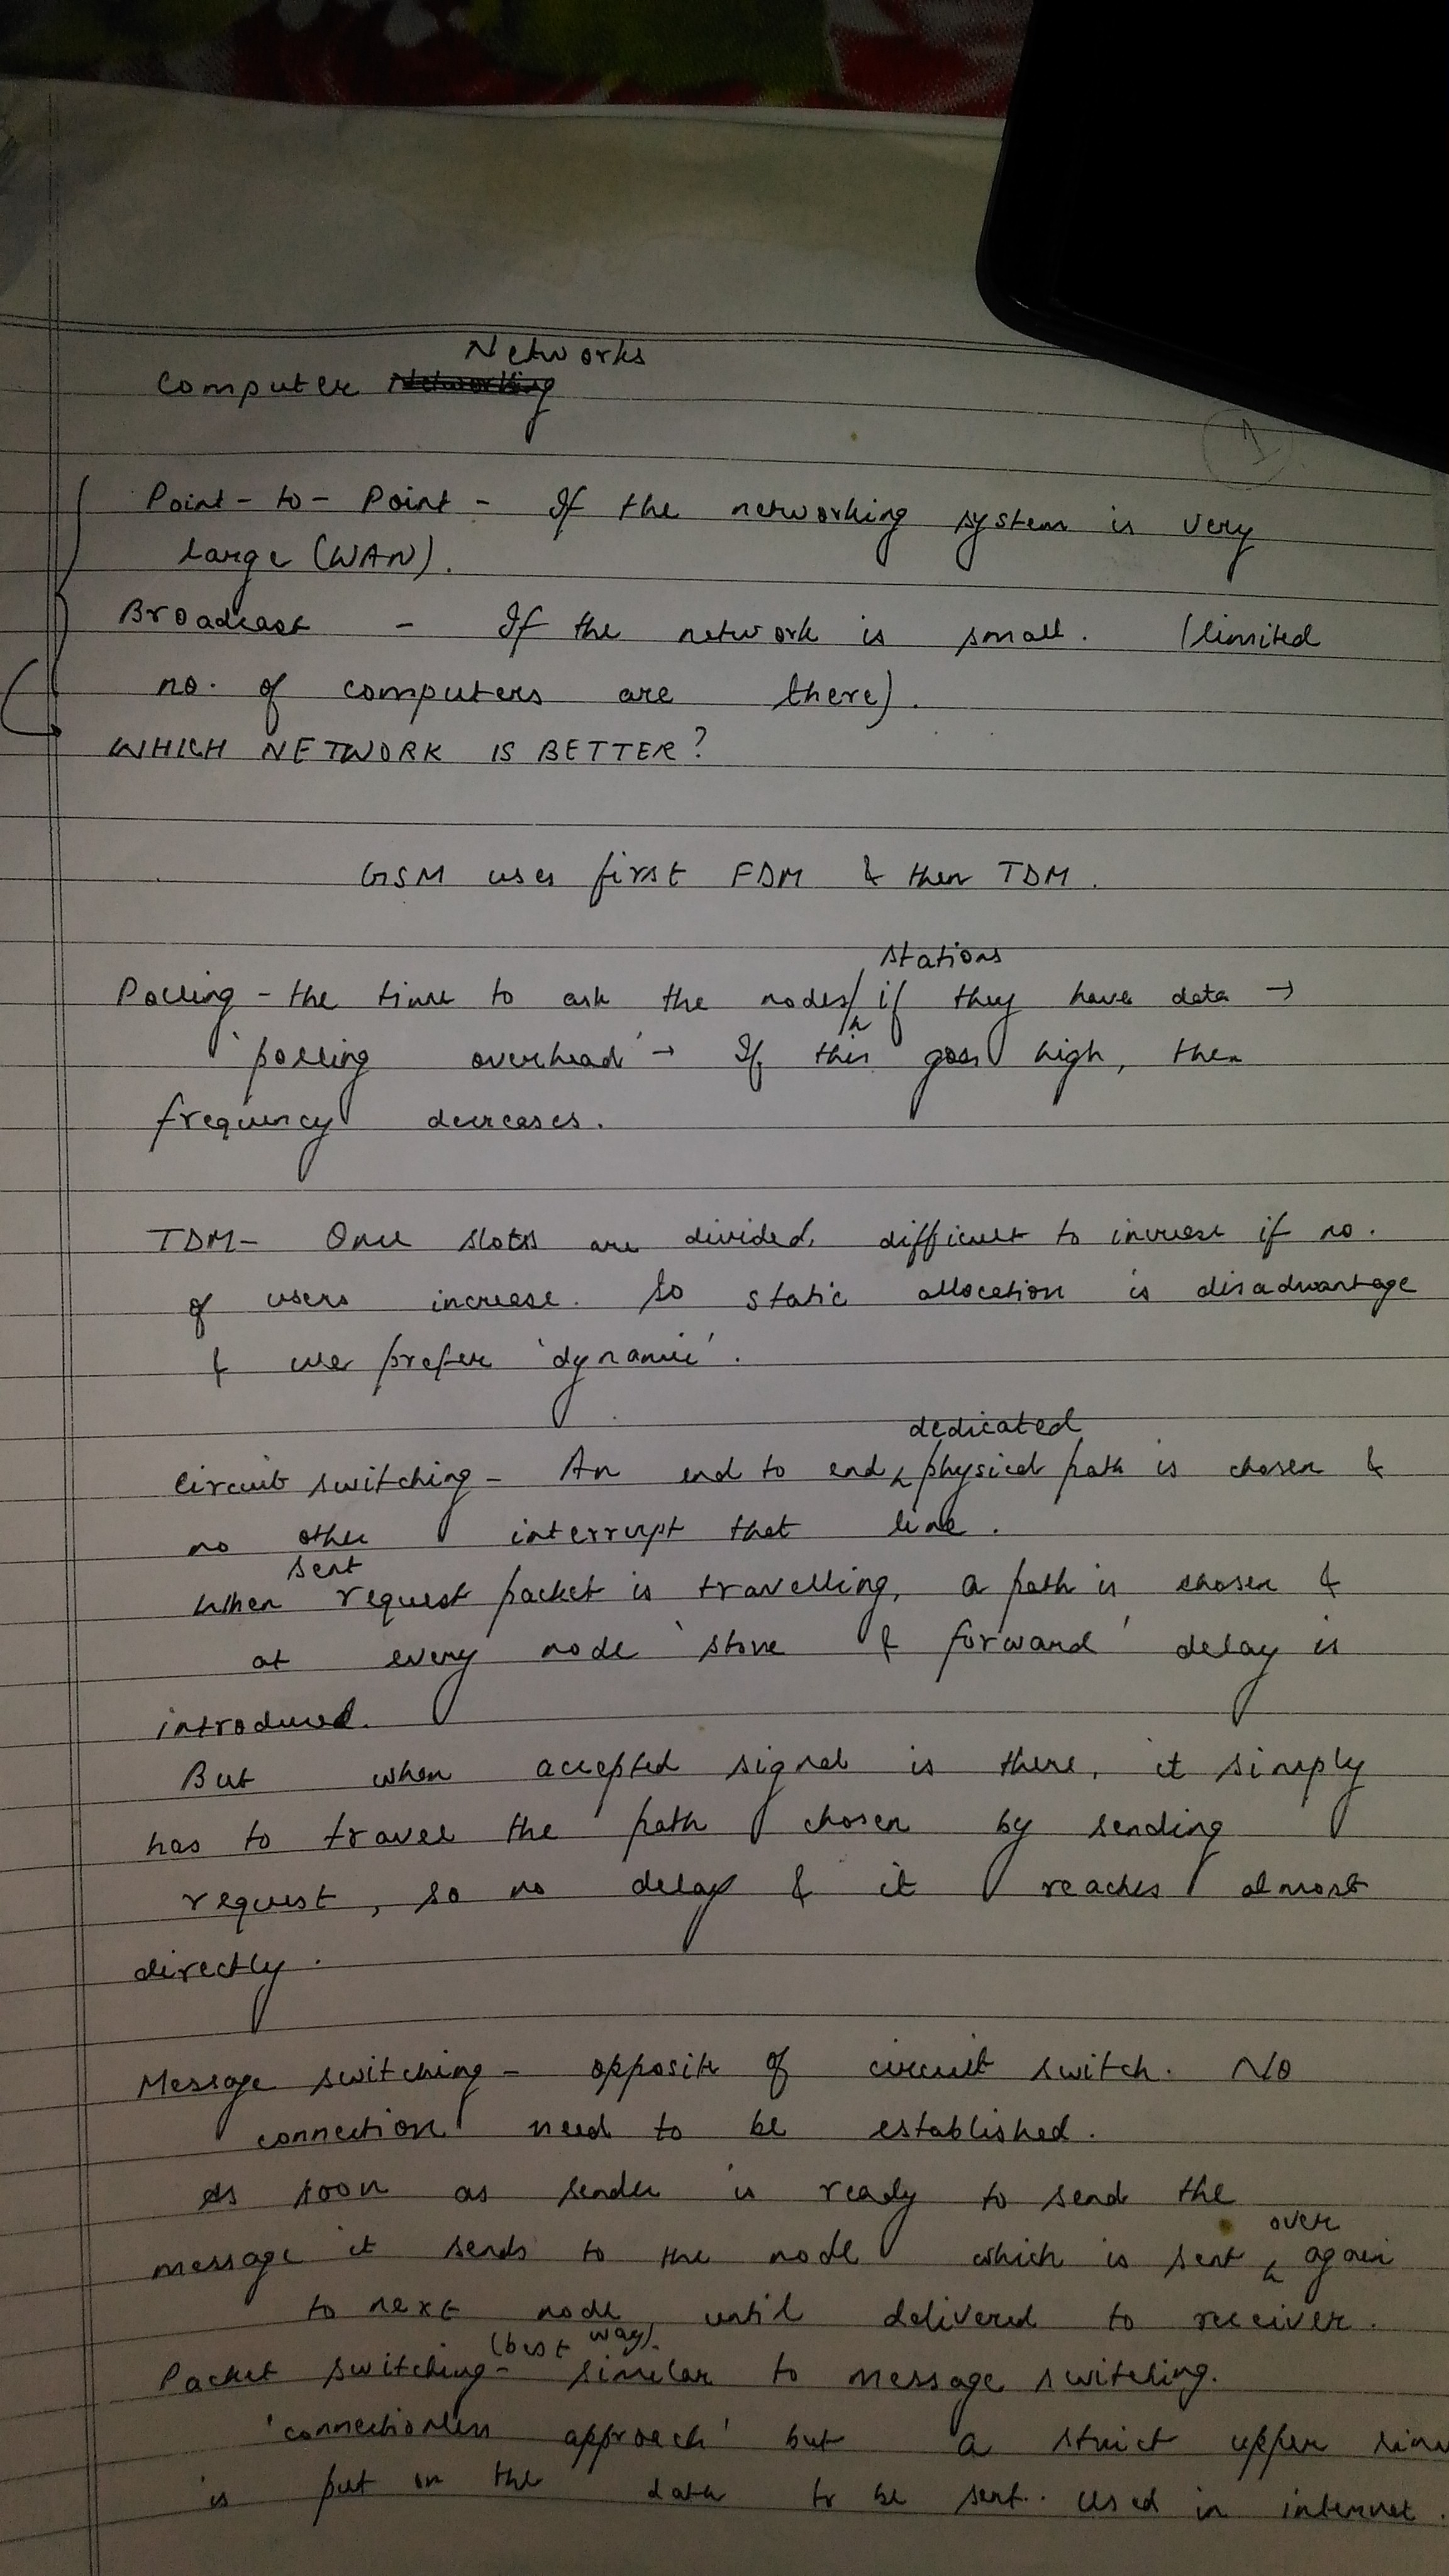 Networks
Computer
1
Point-to-Point - If the networking system is very
large (WAN).
Broadcast - If the network is small. (limited
no. of computers are there).
WHICH NETWORK IS BETTER?
GSM uses first FDM & then TDM.
stations
Polling - the time to ask the nodes/ if they have data →
'polling overhead' → If this goes high, then
frequency decreases.
TDM - Once slots are divided, difficult to increase if no.
of users increase. So static allocation is disadvantage
& we prefer 'dynamic'.
dedicated
Circuit switching - An end to end physical path is chosen &
no other interrupt that line.
sent
When request packet is travelling, a path is chosen &
at every node 'store & forward' delay is
introduced.
But when accepted signal is there, it simply
has to travel the path chosen by sending
request, so no delay & it reaches almost
directly.
Message switching - opposite of circuit switch. No
connection need to be established.
As soon as sender is ready to send the
over
message it sends to the node which is sent again
to next node until delivered to receiver.
(best way).
Packet switching - similar to message switching.
'connectionless approach' but a strict upper
is put on the data to be sent. Used in internet.